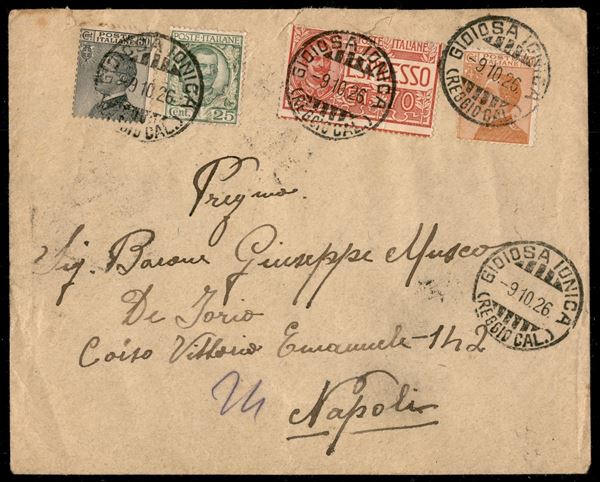 POSTE ITALIANE
Cent. 25
POSTE ITALIANE
ESPRESSO
GIOIOSA IONICA
-9.10.26
(REGGIO CAL.)
GIOIOSA IONICA
-9.10.26
(REGGIO CAL.)
GIOIOSA IONICA
-9.10.26
(REGGIO CAL.)
Pregmo
Sig. Barone Giuseppe Musco
De Iorio
Corso Vittorio Emanuele 142
Napoli
GIOIOSA IONICA
-9.10.26
(REGGIO CAL.)